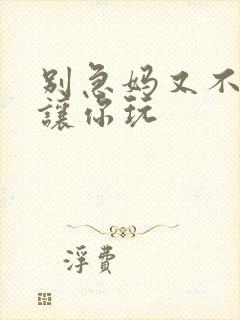 别急妈又不
讓你玩
浮費